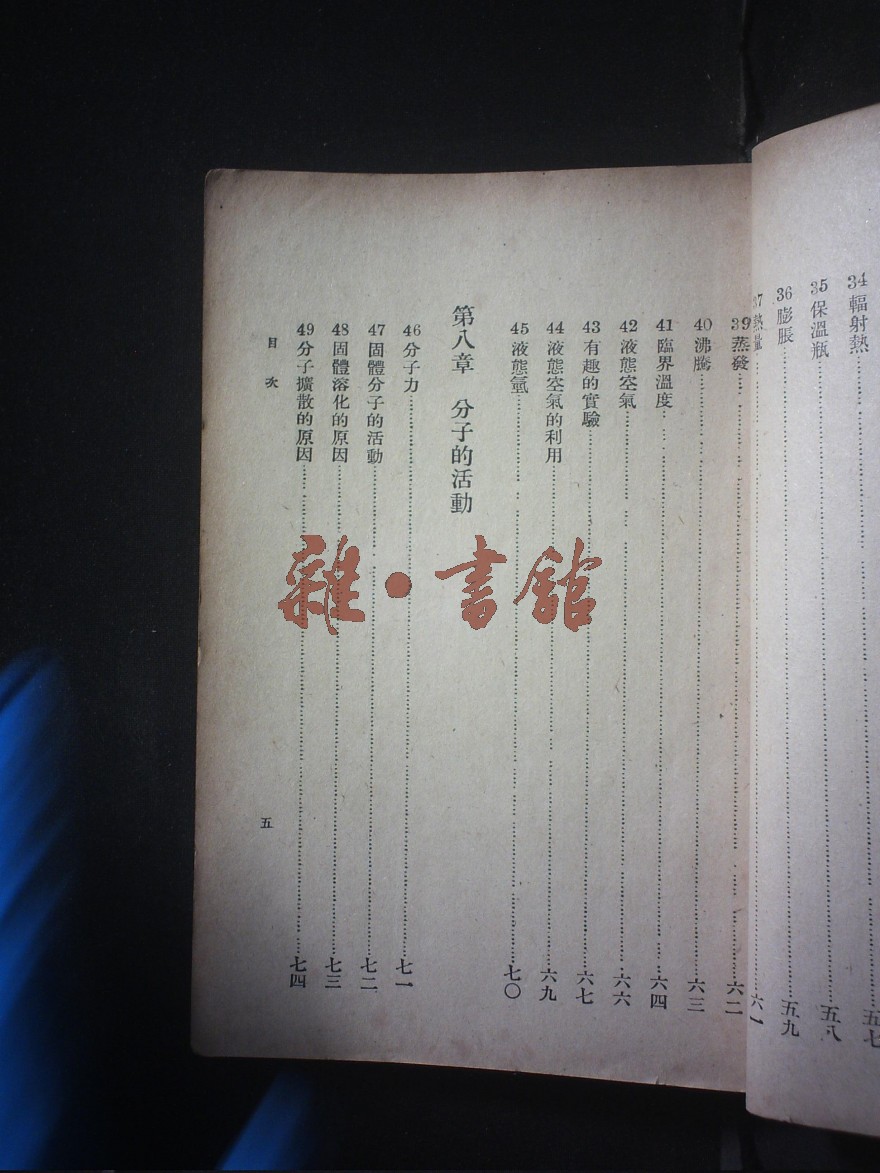 34 輻射熱……五七
35 保溫瓶……五八
36 膨脹……五九
37 熱量……六一
39 蒸發……六二
40 沸騰……六三
41 臨界溫度……六四
42 液態空氣……六六
43 有趣的實驗……六七
44 液態空氣的利用……六九
45 液態氫……七〇
第八章 分子的活動
46 分子力……七一
47 固體分子的活動……七二
48 固體溶化的原因……七三
49 分子擴散的原因……七四
目次
五
雜·書館